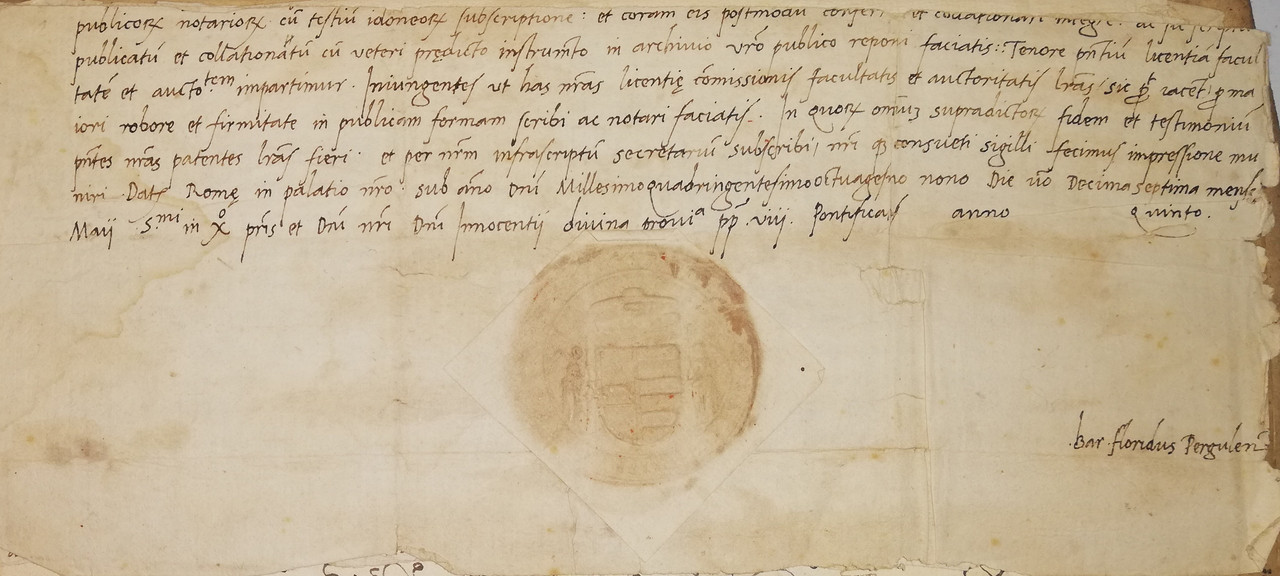 publicorꝝ notariorꝝ cū testiū idoneorꝝ subscriptione: et coram eis postmodū
publicatū et collationatū cū veteri prędicto instrumto in archivio vro publico reponi faciatis: Tenore pntiū licentiā facul
tatē et aucto tem impartimur. Iniungentes ut has nras licentię comissionis facultatis et auctoritatis lras sic ꝓ iacet ꝓ ma
iori robore et firmitate in publicam formam scribi ac notari faciatis. In quorꝝ omniuȝ supradictorꝝ fidem et testimoniū
pntes nras patentes lras fieri: et per nrm infrascriptū secretariū subscribi, nri qꝫ consueti sigilli fecimus impressione mu
niri. Datꝭ Romę in palatio nro: sub año Dni Millesimoquadringentesimooctuagesno nono Die vo Decimaseptima mensꝭ
Maii S.mi in X° pris et Dni nri Dni Innocentii divina ꝓvia pp. viii. Pontificatꝭ anno quinto.
.bar. floridus Perguleñ